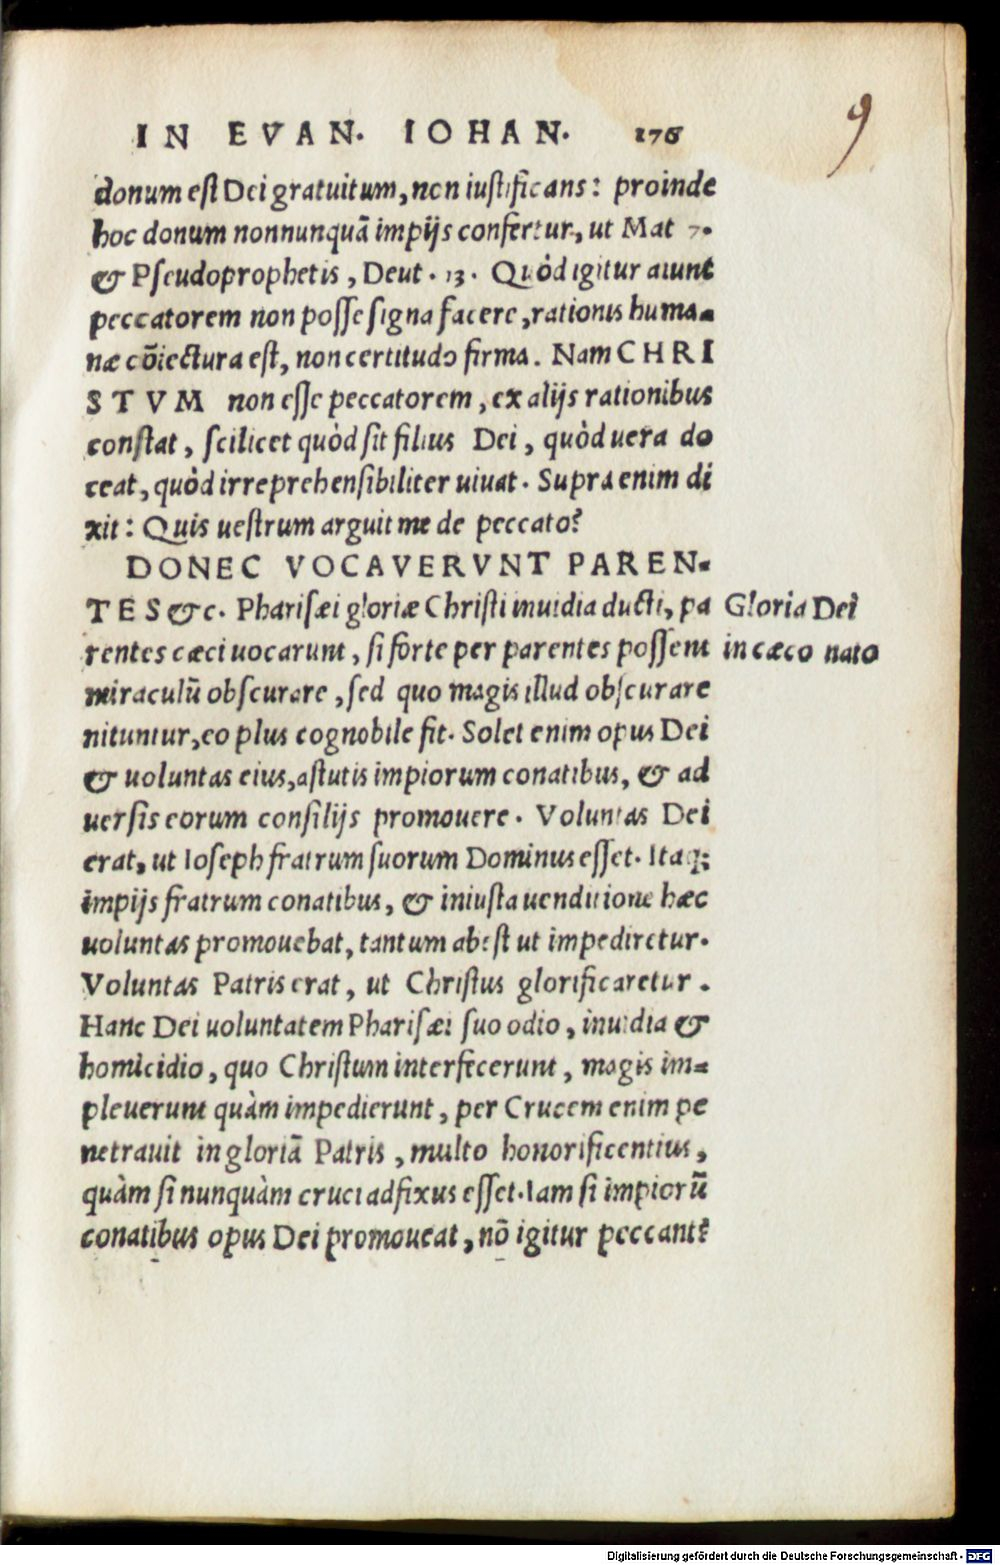 IN EVAN. IOHAN. 176
9
donum est Dei gratuitum, non iustificans: proinde
hoc donum nonnunquā impijs confertur, ut Mat 7.
& Pseudoprophetis, Deut. 13. Quòd igitur aiunt
peccatorem non posse signa facere, rationis huma-
næ cōiectura est, non certitudo firma. Nam CHRI
STVM non esse peccatorem, ex alijs rationibus
constat, scilicet quòd sit filius Dei, quòd uera do
ceat, quòd irreprehensibiliter uiuat. Supra enim di
xit: Quis uestrum arguit me de peccato?
DONEC VOCAVERVNT PAREN-
TES &c. Pharisæi gloriæ Christi inuidia ducti, pa
rentes cæci uocarunt, si forte per parentes possent
miraculū obscurare, sed quo magis illud obscurare
nituntur, eo plus cognobile fit. Solet enim opus Dei
& uoluntas eius, astutis impiorum conatibus, & ad
uersis eorum consilijs promouere. Voluntas Dei
erat, ut Ioseph fratrum suorum Dominus esset. Itaq;
impijs fratrum conatibus, & iniusta uenditione hæc
uoluntas promouebat, tantum abest ut impediretur.
Voluntas Patris erat, ut Christus glorificaretur.
Hanc Dei uoluntatem Pharisæi suo odio, inuidia &
homicidio, quo Christum interfecerunt, magis im-
pleuerunt quàm impedierunt, per Crucem enim pe
netrauit in gloriā Patris, multo honorificentius,
quàm si nunquàm cruci adfixus esset. Iam si impiorū
conatibus opus Dei promoueat, nō igitur peccant?
Gloria Dei
in cæco nato
Digitalisierung gefördert durch die Deutsche Forschungsgemeinschaft - DFG